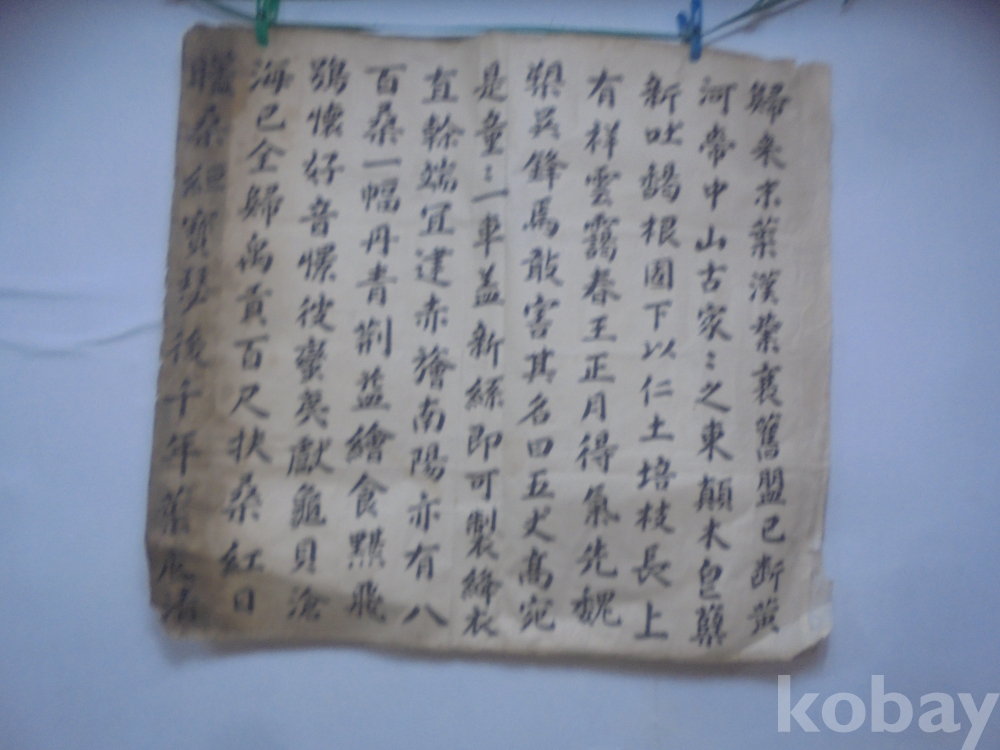 歸来末葉漢業衰舊盟已断黄
河帶中山古家〻之東顛木皀蘖
新吐鵠根固下以仁土培枝長上
有祥雲靄春王正月得氣先魏
槊吴鋒馬敢害其名四五丈高宛
是童〻一車盖新絲即可製絳衣
直幹端冝建赤旛南陽亦有八
百桑一幅丹青荆益繪食黮飛
鴞懷好音懐彼蠻夷獻龜貝滄
海已全歸禹貢百尺扶桑紅日
桑絕寶琴後千年舊
kobay